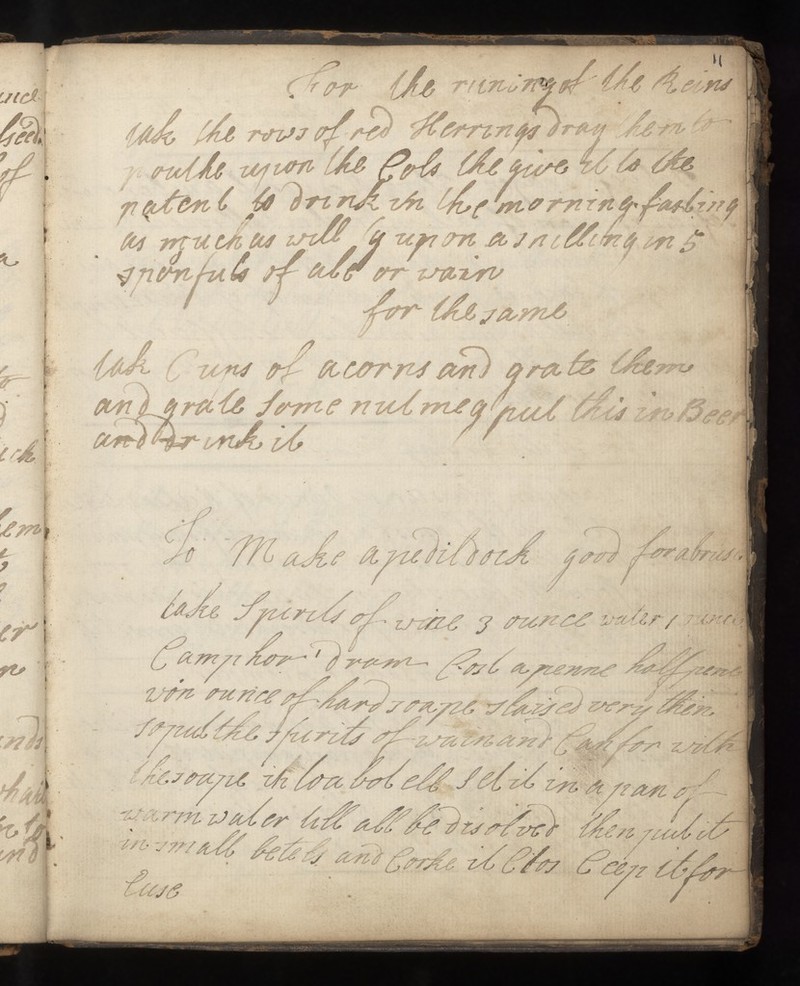 11
For the runing of the Reins
tak the rows of red Herrings dray them to
pouthe upon the Cols the give it to the
patent to drink in the morning fasting
as much as will ly upon a shilling in 5
sponfuls of ale or wain
for the same
tak Cups of acorns and grate them
and grate some nutmeg put this in Beer
and drink it
To Make apedildock good for a brus
take Spirits of wine 3 ounce water 1 ounce
Camphor 1 dram Cost a penne half pene
won ounce of hard soape slaised very thin
so put the spirits of wain and Canfor with
the soape in to a botell Set it in a pan of
warm water till all be disolved then put it
in small betels and Corke it Clos Ceep it for
Cuse